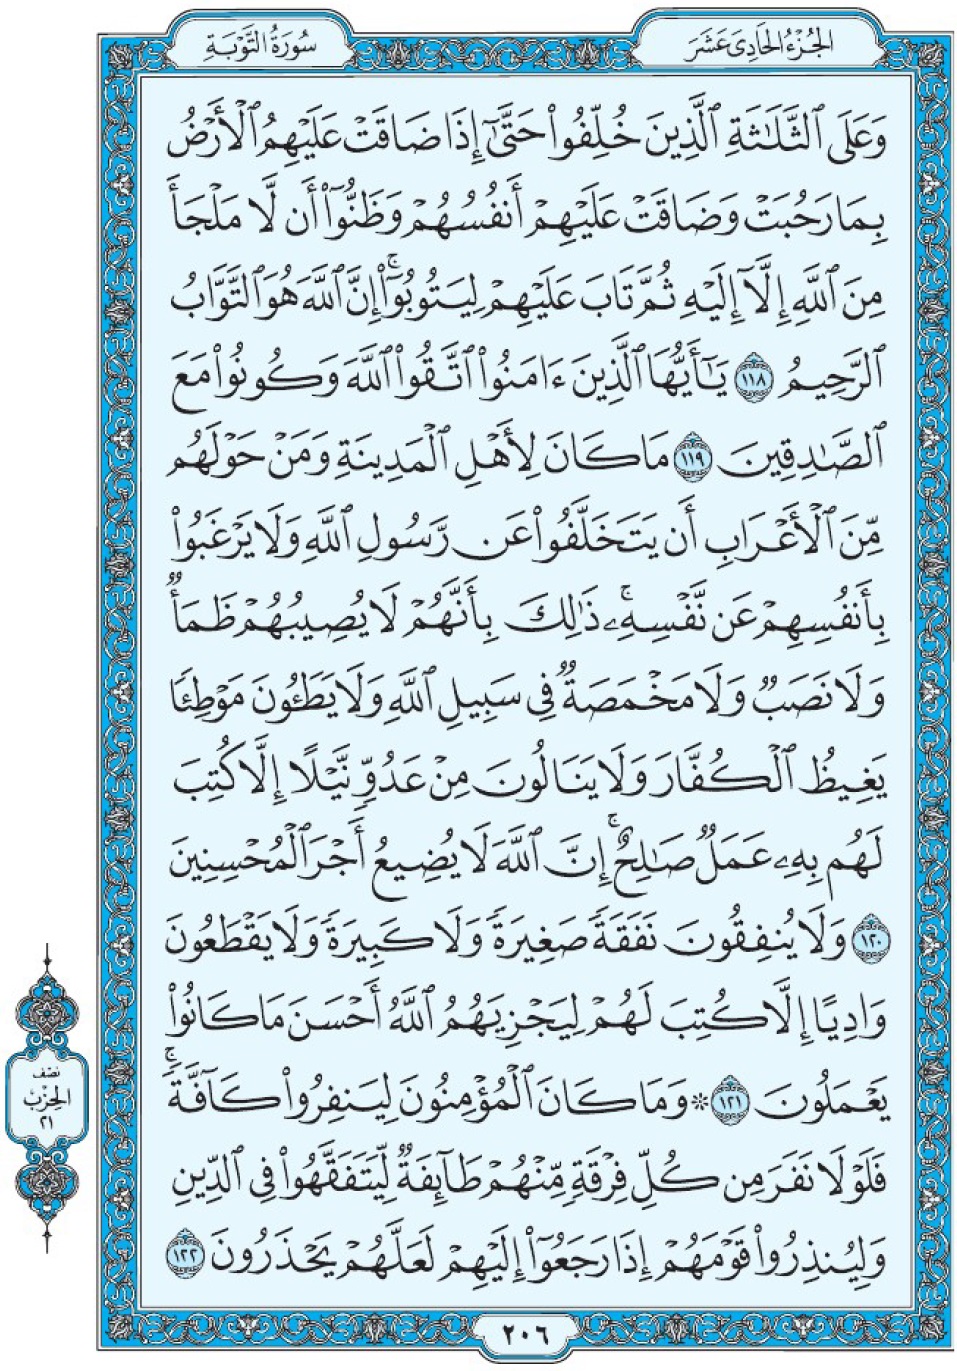 الجُزْءُ الحَادِيَ عَشَرَ
سُورَةُ التَّوْبَةِ
وَعَلَى ٱلثَّلَٰثَةِ ٱلَّذِينَ خُلِّفُوا۟ حَتَّىٰٓ إِذَا ضَاقَتْ عَلَيْهِمُ ٱلْأَرْضُ
بِمَا رَحُبَتْ وَضَاقَتْ عَلَيْهِمْ أَنفُسُهُمْ وَظَنُّوٓا۟ أَن لَّا مَلْجَأَ
مِنَ ٱللَّهِ إِلَّآ إِلَيْهِ ثُمَّ تَابَ عَلَيْهِمْ لِيَتُوبُوٓا۟ ۚ إِنَّ ٱللَّهَ هُوَ ٱلتَّوَّابُ
ٱلرَّحِيمُ ١١٨ يَٰٓأَيُّهَا ٱلَّذِينَ ءَامَنُوا۟ ٱتَّقُوا۟ ٱللَّهَ وَكُونُوا۟ مَعَ
ٱلصَّٰدِقِينَ ١١٩ مَا كَانَ لِأَهْلِ ٱلْمَدِينَةِ وَمَنْ حَوْلَهُم
مِّنَ ٱلْأَعْرَابِ أَن يَتَخَلَّفُوا۟ عَن رَّسُولِ ٱللَّهِ وَلَا يَرْغَبُوا۟
بِأَنفُسِهِمْ عَن نَّفْسِهِۦ ۚ ذَٰلِكَ بِأَنَّهُمْ لَا يُصِيبُهُمْ ظَمَأٌ
وَلَا نَصَبٌ وَلَا مَخْمَصَةٌ فِى سَبِيلِ ٱللَّهِ وَلَا يَطَـُٔونَ مَوْطِئًا
يَغِيظُ ٱلْكُفَّارَ وَلَا يَنَالُونَ مِنْ عَدُوٍّ نَّيْلًا إِلَّا كُتِبَ
لَهُم بِهِۦ عَمَلٌ صَٰلِحٌ ۚ إِنَّ ٱللَّهَ لَا يُضِيعُ أَجْرَ ٱلْمُحْسِنِينَ
١٢٠ وَلَا يُنفِقُونَ نَفَقَةً صَغِيرَةً وَلَا كَبِيرَةً وَلَا يَقْطَعُونَ
وَادِيًا إِلَّا كُتِبَ لَهُمْ لِيَجْزِيَهُمُ ٱللَّهُ أَحْسَنَ مَا كَانُوا۟
يَعْمَلُونَ ١٢١ * وَمَا كَانَ ٱلْمُؤْمِنُونَ لِيَنفِرُوا۟ كَآفَّةً ۚ
فَلَوْلَا نَفَرَ مِن كُلِّ فِرْقَةٍ مِّنْهُمْ طَآئِفَةٌ لِّيَتَفَقَّهُوا۟ فِى ٱلدِّينِ
وَلِيُنذِرُوا۟ قَوْمَهُمْ إِذَا رَجَعُوٓا۟ إِلَيْهِمْ لَعَلَّهُمْ يَحْذَرُونَ ١٢٢
نصف
الحِزْب
٢١
٢٠٦